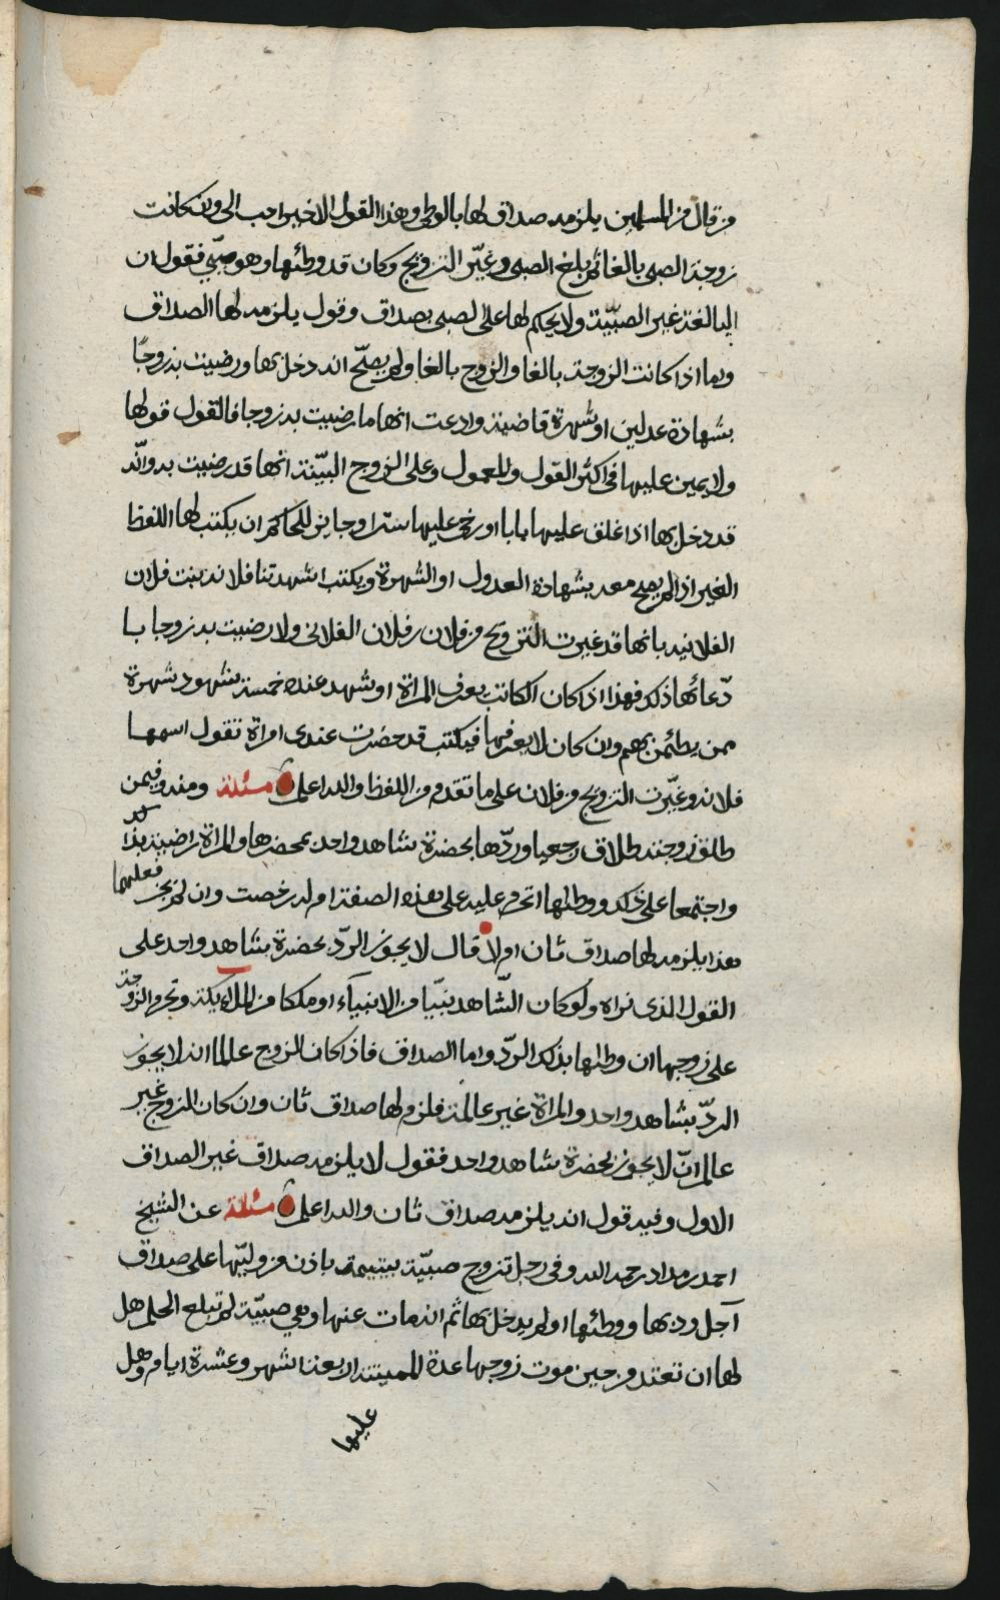 من قال من المسلمين يلزمه صداق لها بالوطي وهذا القول الاخير احب الي وان كانت
زوجة الصبي بالغا ثم بلغ الصبي وغيّر التزويج وكان قد وطئها وهو صبّي فقول ان
البالغة غير الصبيّة ولا يحكم لها على الصبي بصداق وقول يلزمه لها الصداق
واما اذا كانت الزوجة بالغا والزوج بالغا ولم يصحّ انه دخل بها ورضيت به زوجًا
بشهادة عدلين او شهرة قاضية وادعت انها ما رضيت به زوجا فالقول قولها
ولا يمين عليها في اكثر القول والمعمول وعلى الزوج البيّنة انها قد رضيت به وانّه
قد دخل بها اذا اغلق عليها بابا او رخى عليها سترا وجايز للحاكم ان يكتب لها اللفظ
الغير اذا لم يصح معه بشهادة العدول او الشهرة ويكتب اشهدتنا فلانة بنت فلان
الفلانية بانها قد غيرت التزويج من فلان بن فلان الفلاني ولا رضيت به زوجا با
دّعائها ذلك فهذا اذا كان الكاتب يعرف المراة او شهد عنده خمسة شهود شهرة
ممن يطئمن بهم وان كان لا يعرفها فيكتب قد حضرت عندي امراة تقول اسمها
فلانة وغيّرت التزويج من فلان على ما تقدم من اللفظ والله اعلم مسئلة ومنه وفيمن
طلق زوجته طلاق رجعيا وردّها بحضرة شاهد واحد بمحضرها والمراة راضية بذلك
واجتمعا على ذلك ووطئها اتحرم عليه على هذه الصفة ام له رخصت وان لم يجز فعلهما
هذا يلزمه لها صداق ثان ام لا قال لا يجوز الردّ بحضرة شاهد واحد على
القول الذي نراه ولو كان الشّاهد نبيّا من الانبيآء او ملكا من الملآيكة وتحرم الزوجة
على زوجها ان وطئها بذلك الردّ واما الصداق فاذا كان الزوج عالما انه لا يجوز
الردّ بشاهد واحد والمراة غير عالمة فلزم لها صداق ثان وان كان الزوج غير
عالم انّ لا يجوز بحضرة شاهد واحد فقول لا يلزمه صداق غير الصداق
الاول وفيه قول انه يلزمه صداق ثان والله اعلم مسئلة عن الشيخ
احمد بن مداد رحمه الله وفي رجل تزوج صبيّة يتيمة باذن من وليّها على صداق
آجل ودخل بها ووطئها او لم يدخل بها ثم انه مات عنها وهي صبيّة لم تبلغ الحلم هل
لها ان تعتد من حين موت زوجها عدة المميتة اربعة اشهر وعشرة ايام وهل
عليها